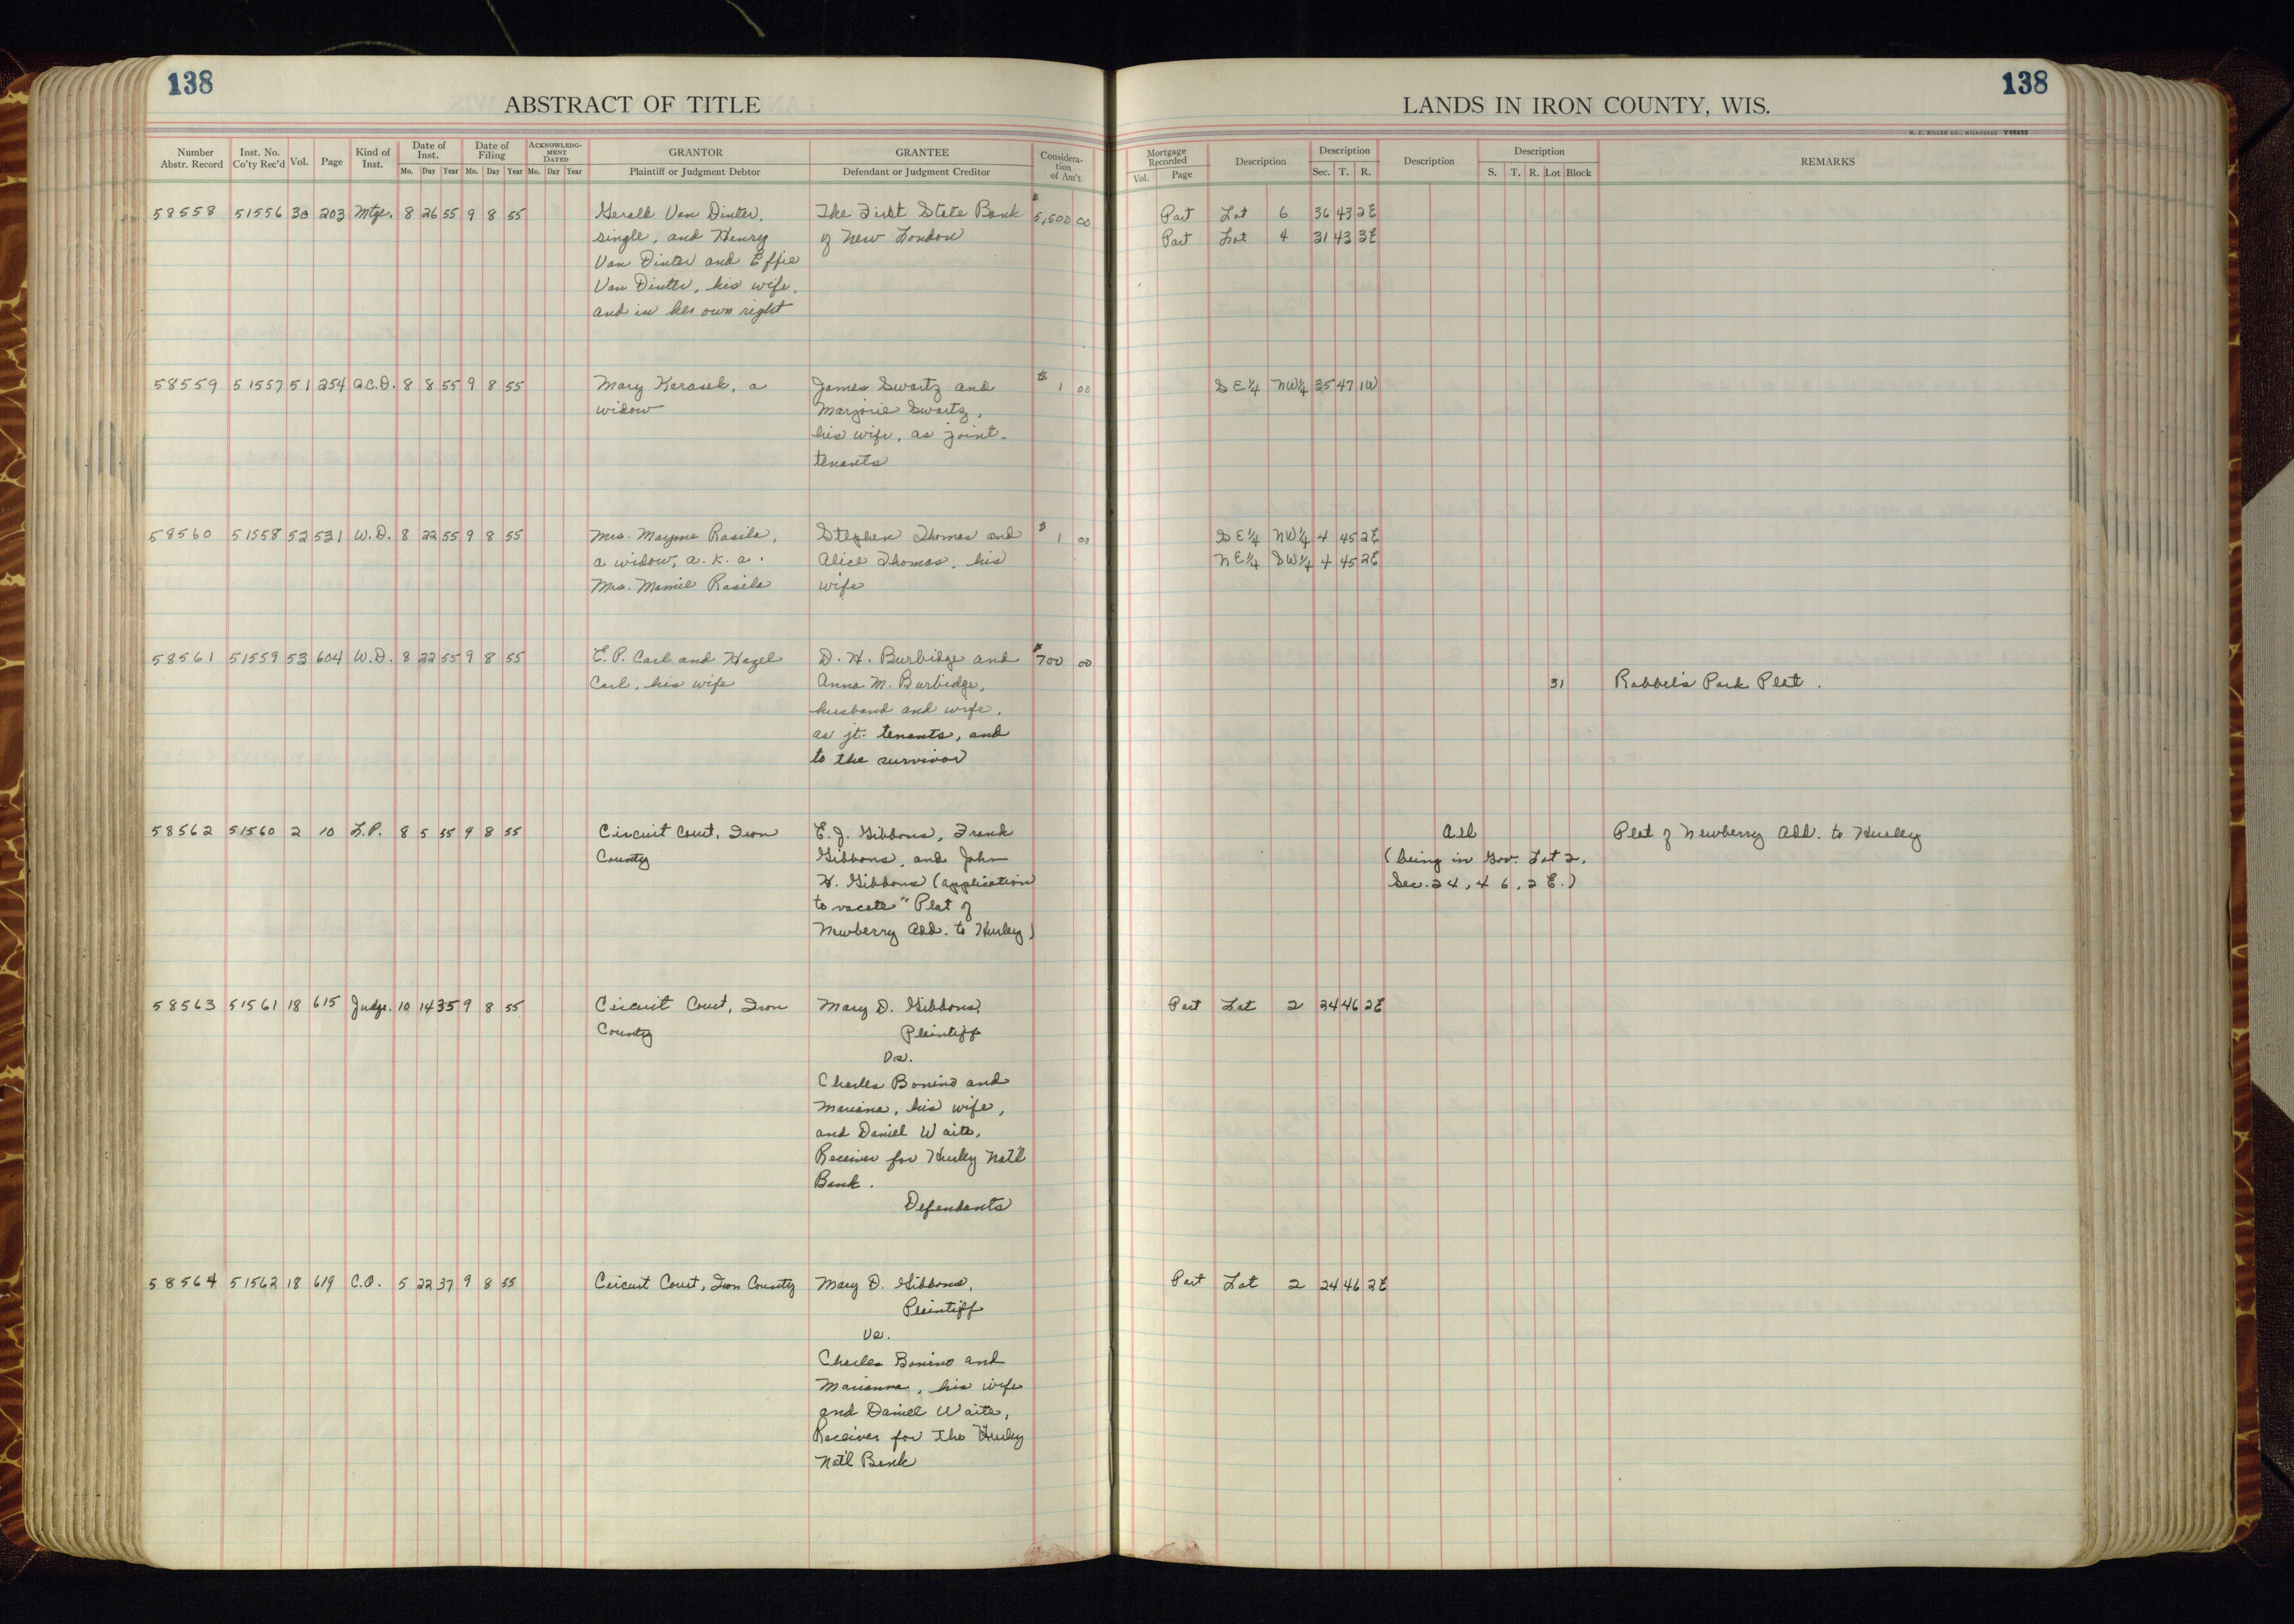 138
138
ABSTRACT OF TITLE
LANDS IN IRON COUNTY, WIS.
H. C. MILLER CO., MILWAUKEE Y66653
Number Abstr. Record
Inst. No. Co'ty Rec'd
Vol.
Page
Kind of Inst.
Date of Inst.
Mo. Day Year
Date of Filing
Mo. Day Year
ACKNOWLEDGMENT DATED
Mo. Day Year
GRANTOR
Plaintiff or Judgment Debtor
GRANTEE
Defendant or Judgment Creditor
Consideration of Am't
Mortgage Recorded
Vol. Page
Description
Description
Sec. T. R.
Description
Description
S. T. R. Lot Block
REMARKS
58558 51556 30 203 Mtge. 8 26 55 9 8 55 Gerald Van Dinter, The First State Bank $5,500 00 Part Lot 6 36 43 2E
single, and Henry of New London Part Lot 4 31 43 3E
Van Dinter and Effie
Van Dinter, his wife,
and in her own right
58559 51557 51 254 Q.C.D. 8 8 55 9 8 55 Mary Karasek, a James Swartz and $1 00 SE¼ NW¼ 35 47 1W
widow Marjorie Swartz,
his wife, as joint-
tenants
58560 51558 52 531 W.D. 8 22 55 9 8 55 Mrs. Mayme Rasila, Stephen Thomas and $1 00 SE¼ NW¼ 4 45 2E
a widow, a.k.a. Alice Thomas, his NE¼ SW¼ 4 45 2E
Mrs. Mamie Rasila wife
58561 51559 53 604 W.D. 8 22 55 9 8 55 E. P. Carl and Hazel D. H. Burbidge and $700 00
Carl, his wife Anna M. Burbidge, 31 Robbel's Park Plat.
husband and wife,
as jt. tenants, and
to the survivor
58562 51560 2 10 L.P. 8 5 55 9 8 55 Circuit Court, Iron E. J. Gibbons, Frank All Plat of Newberry Add. to Hurley
County Gibbons, and John (being in Gov. Lot 2,
H. Gibbons (application Sec. 24, 46, 2 E.)
to vacate " Plat of
Newberry Add. to Hurley)
58563 51561 18 615 Judge. 10 14 35 9 8 55 Circuit Court, Iron Mary D. Gibbons, Part Lot 2 24 46 2E
County Plaintiff
vs.
Charles Bonino and
Mariana, his wife,
and Daniel Waite,
Receiver for Hurley Nat'l
Bank.
Defendants
58564 51562 18 619 C.O. 5 22 37 9 8 55 Circuit Court, Iron County Mary D. Gibbons, Part Lot 2 24 46 2E
Plaintiff
vs.
Charles Bonino and
Marianna, his wife
and Daniel Waite,
Receiver for the Hurley
Nat'l Bank